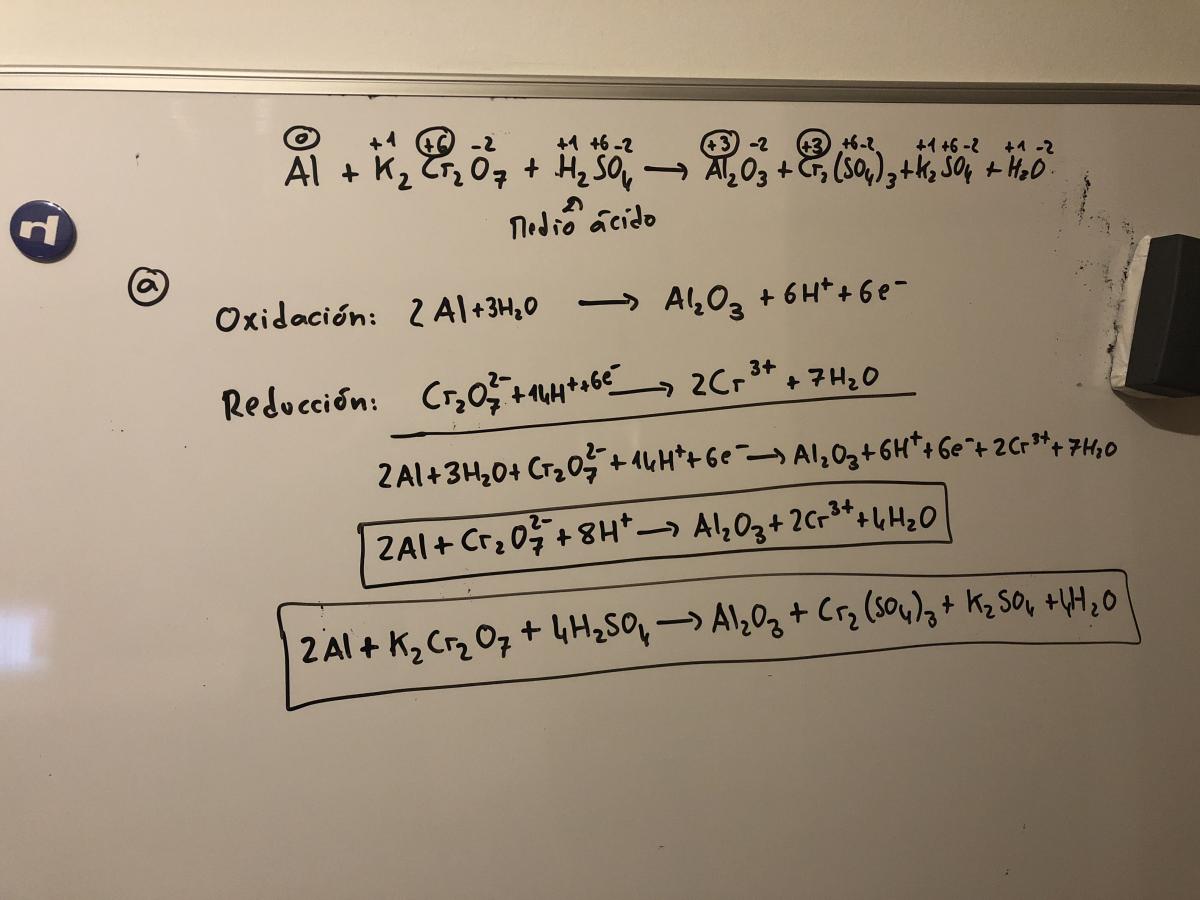 0 +1 +6 -2 +1 +6 -2 +3 -2 +3 +6 -2 +1 +6 -2 +1 -2
Al + K₂Cr₂O₇ + H₂SO₄ → Al₂O₃ + Cr₂(SO₄)₃ + K₂SO₄ + H₂O
Medio ácido
a
Oxidación: 2Al + 3H₂O → Al₂O₃ + 6H⁺ + 6e⁻
Reducción: Cr₂O₇²⁻ + 14H⁺ + 6e⁻ → 2Cr³⁺ + 7H₂O
2Al + 3H₂O + Cr₂O₇²⁻ + 14H⁺ + 6e⁻ → Al₂O₃ + 6H⁺ + 6e⁻ + 2Cr³⁺ + 7H₂O
2Al + Cr₂O₇²⁻ + 8H⁺ → Al₂O₃ + 2Cr³⁺ + 4H₂O
2Al + K₂Cr₂O₇ + 4H₂SO₄ → Al₂O₃ + Cr₂(SO₄)₃ + K₂SO₄ + 4H₂O